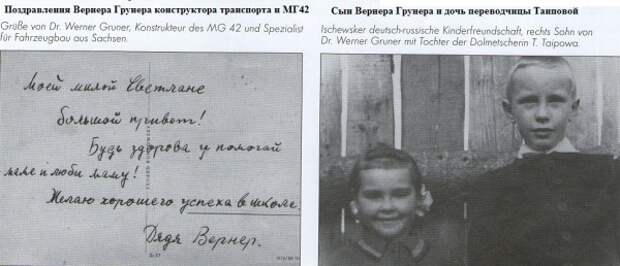 Поздравления Вернера Грунера конструктора транспорта и МГ42
Grüße von Dr. Werner Gruner, Konstrukteur des MG 42 und Spezialist
für Fahrzeugbau aus Sachsen.
Моей милой Светлане
большой привет!
Будь здорова и помогай
маме и люби маму!
Желаю хорошего успеха в школе.
Дядя Вернер.
Сын Вернера Грунера и дочь переводчицы Таиповой
Ischewsker deutsch-russische Kinderfreundschaft, rechts Sohn von
Dr. Werner Gruner mit Tochter der Dolmetscherin T. Taipowa.